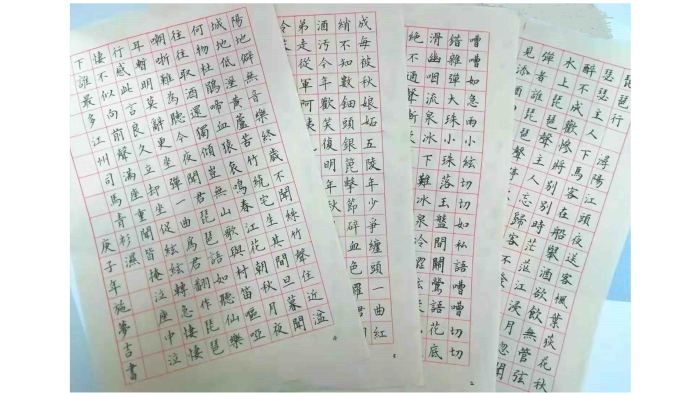 琵琶行
潯陽江頭夜送客楓葉荻花秋
瑟瑟主人下馬客在船舉酒欲飲無管弦
醉不成歡慘將別別時茫茫江浸月忽聞
水上琵琶聲主人忘歸客不
彈者誰琵琶聲停
見添酒
嘈嘈如急雨小絃切切如私語嘈嘈切切
錯雜彈大珠小珠落玉盤間關鶯語花底
滑幽咽流泉冰下難冰泉冷澀絃
絕不通聲暫
成每被秋娘妬五陵年少爭纏頭一曲紅
綃不知數鈿頭銀箆擊節碎血色羅
酒污今年歡笑復明年秋
弟走從軍阿姨
冷
陽地僻無音樂終歲不聞絲竹聲住近湓
城地低溼黃蘆苦竹繞宅生其間旦暮聞
何物杜鵑啼血猿哀鳴春江花朝秋月夜
往往取酒還獨傾豈無山歌與村笛嘔啞
啁哳難為聽今夜聞君琵琶語如聽仙樂
耳暫明莫辭更坐彈一曲為君翻作琵琶
行感此言良久立卻坐促絃絃轉急悽
悽不似向前聲滿座重聞皆掩泣座中泣
下誰最多江州司馬青衫濕
庚子年施夢吉書